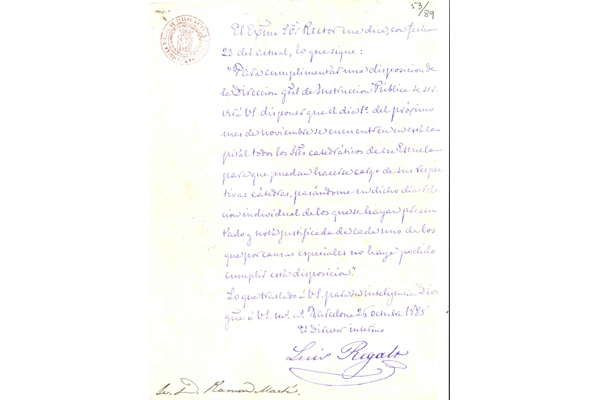 53/89
El Exmo Sor Rector me dice, con fecha
23 del actual, lo que sigue:
"Para cumplimentar una disposicion de
la Direccion gral de Instruccion Pública se ser-
virá V.S. disponer que el dia 1º del próximo
mes de noviembre se encuentren en esta ca-
pital todos los Sres catedráticos de esa Escuela
para que puedan hacerse cargo de sus respec-
tivas cátedras, pasándome en dicho dia rela-
cion individual de los que se hayan presen-
tado y nota justificada de cada uno de los
que por causas especiales no haya podido
cumplir esta disposicion."
Lo que traslado á V.S. para su inteligencia Dios
gue á V.S. ms. as. Barcelona 26 octubre 1885
El Director interino
Luis Rigalt
Sr. D. Ramon Martí.